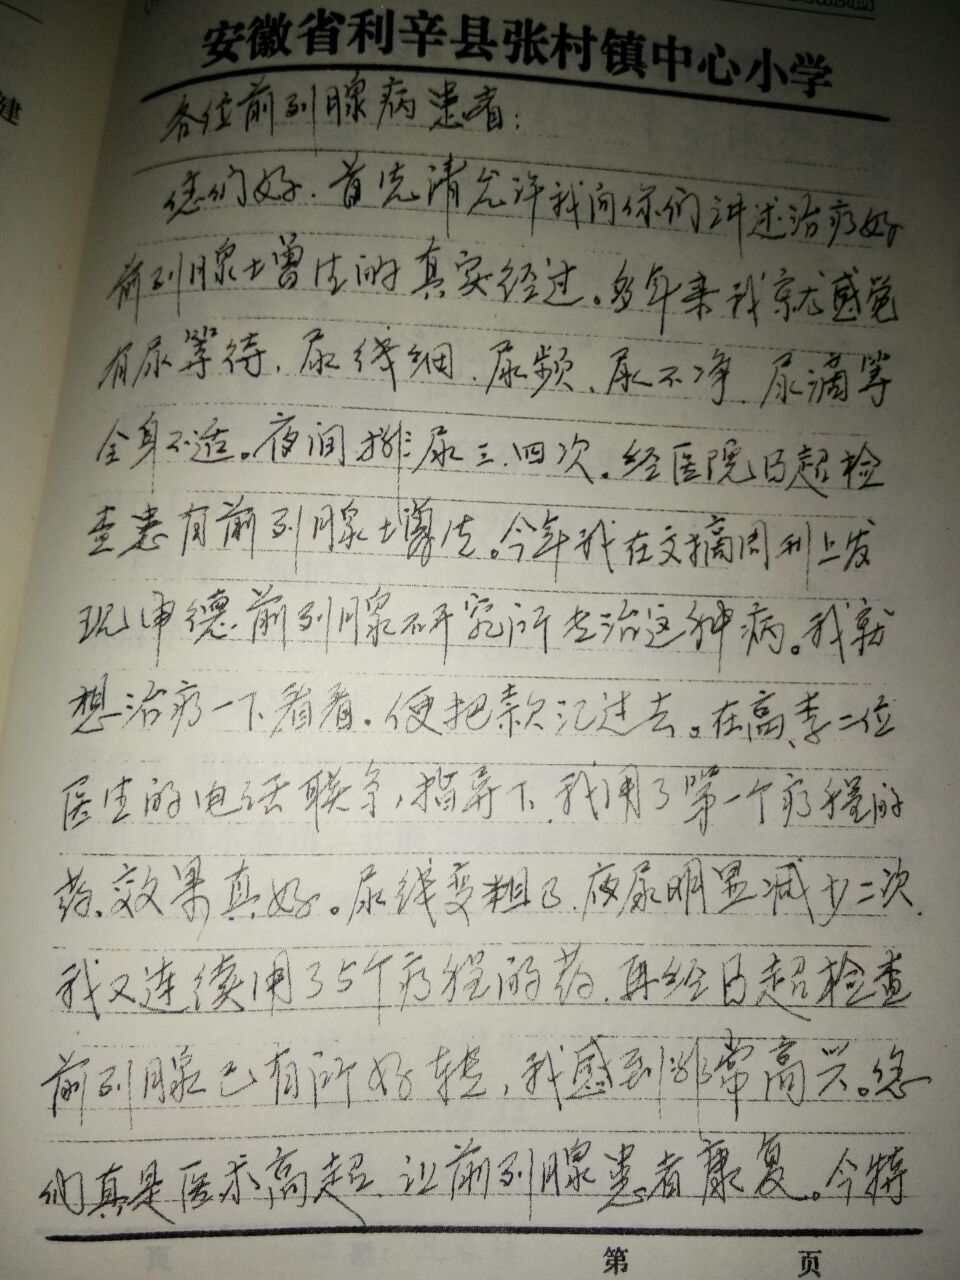 安徽省利辛县张村镇中心小学
各位前列腺病患者：
您们好．首先请允许我向你们讲述治疗好
前列腺增生的真实经过。多年来我就感觉
有尿等待．尿线细．尿频．尿不净．尿滴等
全身不适。夜间排尿三．四次。经医院B超检
查患有前列腺增生。今年我在文摘周刊上发
现申德前列腺研究所专治这种病。我就
想治疗一下看看．便把款汇过去。在高、李二位
医生的电话联系，指导下．我用了第一个疗程的
药．效果真好。尿线变粗了．夜尿明显减少二次．
我又连续用了5个疗程的药．再经B超检查
前列腺已有所好转，我感到非常高兴。您
们真是医术高超．让前列腺患者康复。今特
第 页